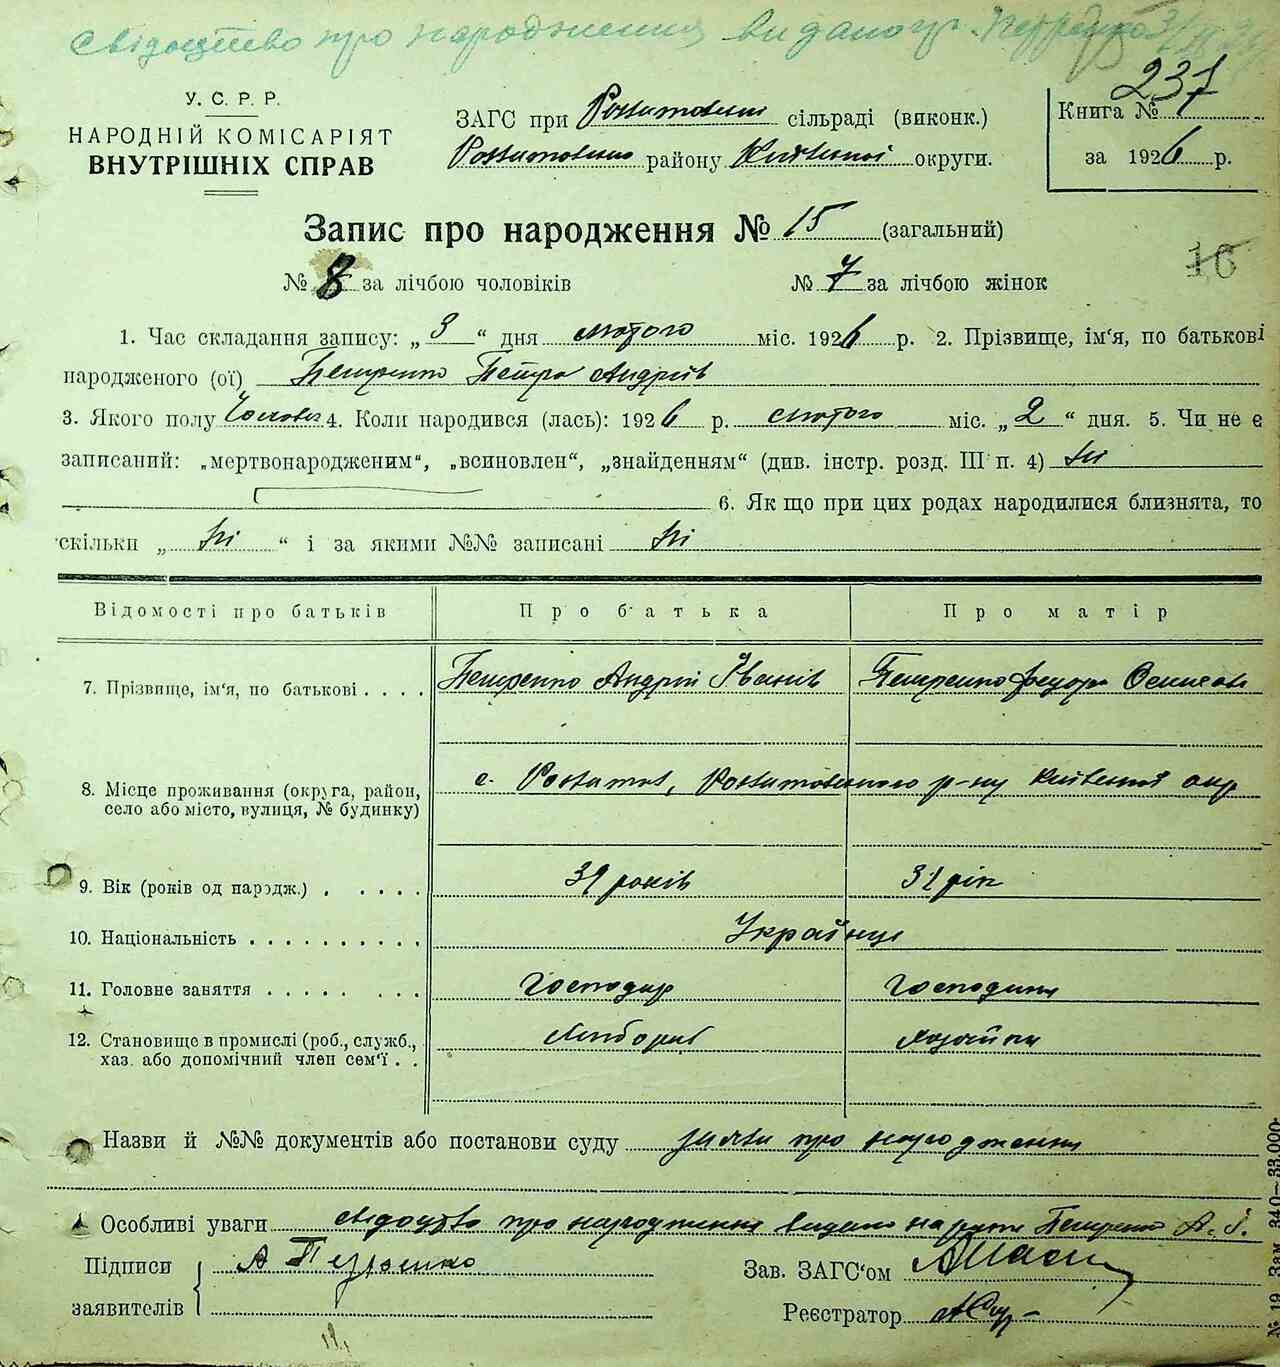 Свідоцтво про народження видано гр. Петренко
У. С. Р. Р.
НАРОДНІЙ КОМІСАРІЯТ
ВНУТРІШНІХ СПРАВ
ЗАГС при сільраді (виконк.)
району Київської округи.
237
Книга №
за 1926 р.
Запис про народження № 15 (загальний)
16
№ 8 за лічбою чоловіків № 7 за лічбою жінок
1. Час складання запису: „3“ дня лютого міс. 1926 р. 2. Прізвище, ім'я, по батькові
народженого (ої) Петренко Петро Андріїв
3. Якого полу 4. Коли народився (лась): 1926 р. лютого міс. „2“ дня. 5. Чи не є
записаний: „мертвонародженим“, „всиновлен“, „знайденням“ (див. інстр. розд. III п. 4) Ні
6. Як що при цих родах народилися близнята, то
скільки „Ні“ і за якими №№ записані Ні
Відомості про батьків Про батька Про матір
7. Прізвище, ім'я, по батькові . . . . Петренко Андрій Іванів Петренко
8. Місце проживання (округа, район,
село або місто, вулиця, № будинку) с. р-ну Київської окр
9. Вік (років од народж.) . . . . . . років 31 рік
10. Національність . . . . . . . . . . Українці
11. Головне заняття . . . . . . . . Господар Господиня
12. Становище в промислі (роб., служб.,
хаз. або допомічний член сем'ї . . Хазяйка
Назви й №№ документів або постанови суду заява про народження
Особливі уваги свідоцтво про народження видано на руки Петренко А. І.
Підписи А Петренко Зав. ЗАГС'ом
заявителів Реєстратор
№ 19 Зам. 340—33.000.